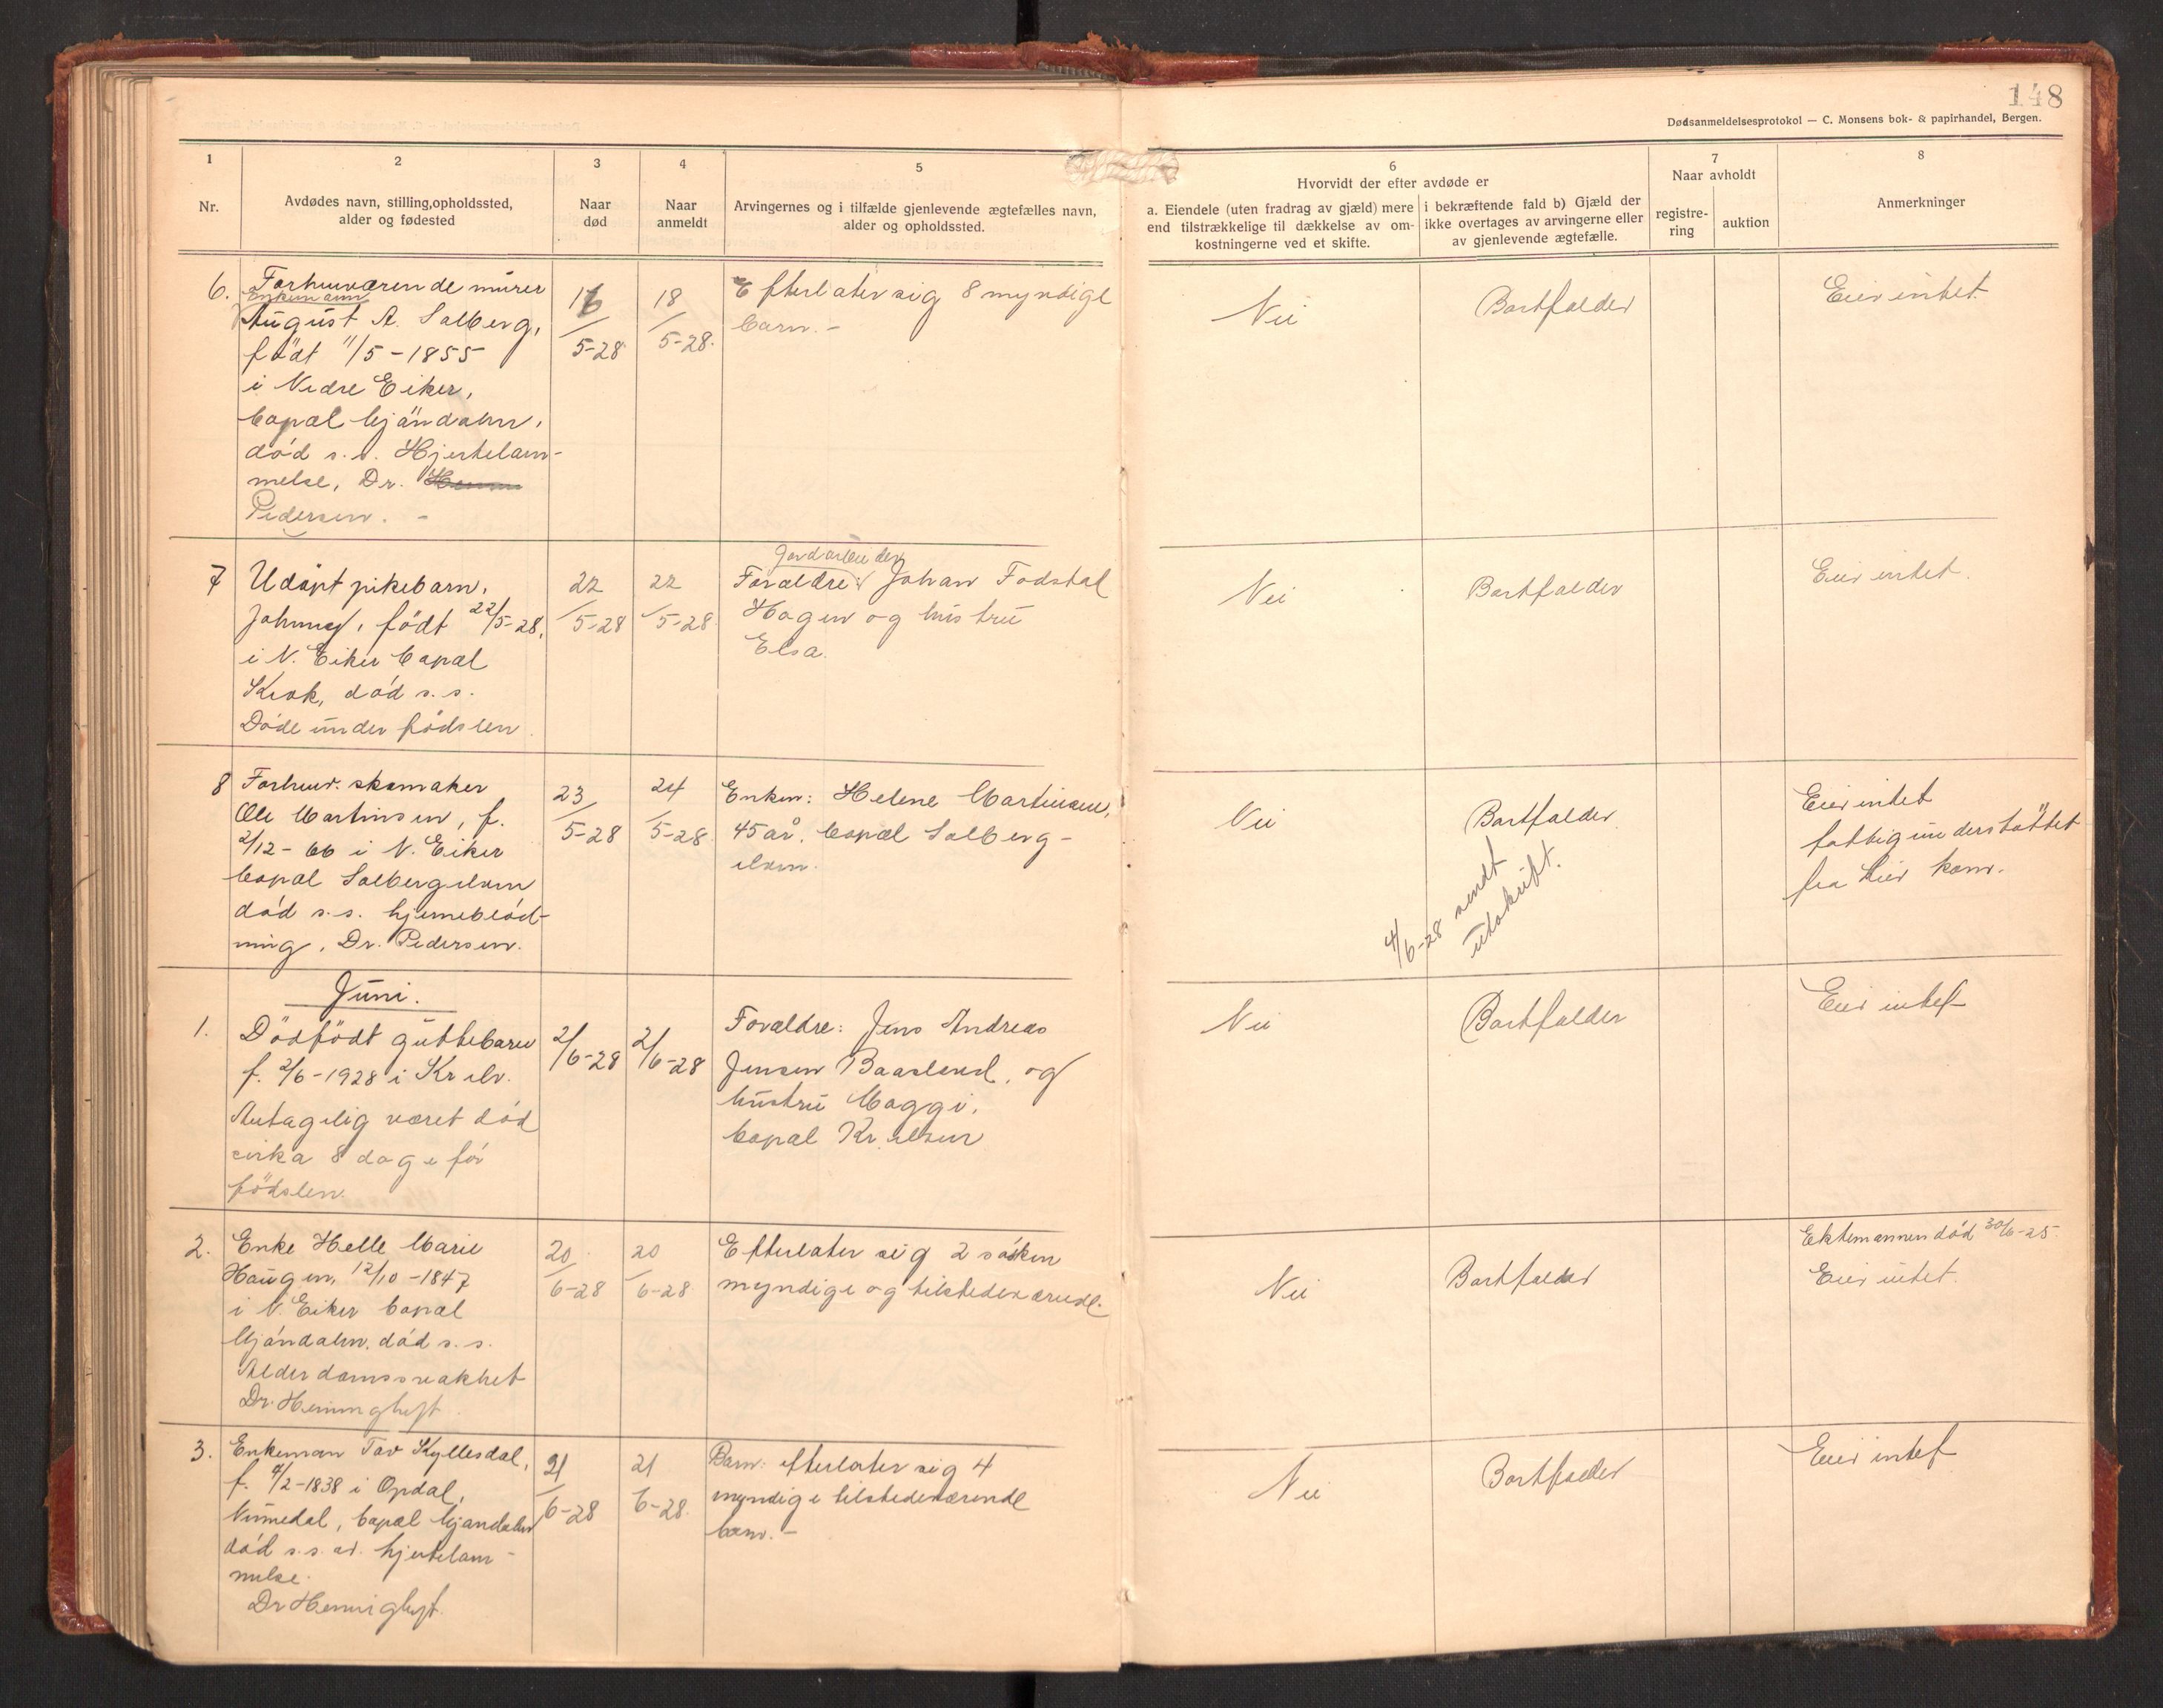 148
Dødsanmeldelsesprotokol — C. Monsens bok- & papirhandel, Bergen.
1
Nr.
2
Avdødes navn, stilling, opholdssted,
alder og fødested
3
Naar
død
4
Naar
anmeldt
5
Arvingernes og i tilfælde gjenlevende ægtefælles navn,
alder og opholdssted.
6
Hvorvidt der efter avdøde er
a. Eiendele (uten fradrag av gjæld) mere
end tilstrækkelige til dækkelse av om-
kostningerne ved et skifte.
i bekræftende fald b) Gjæld der
ikke overtages av arvingerne eller
av gjenlevende ægtefælle.
7
Naar avholdt
registre-
ring
auktion
8
Anmerkninger
6.
Forhenværende murer
Enkemann
August A. Solberg,
født 11/5-1855
i Nedre Eiker,
bopæl Mjøndalen,
død s.s. Hjertelam-
melse, Dr.
Pedersen. -
16/5-28
18/5-28.
Efterlater sig 8 myndige
barn. -
Nei
Bortfalder
Eier intet.
7
Udøpt pikebarn,
født 22/5-28,
i N. Eiker bopæl
Krok, død s.s.
Døde under fødslen.
22/5-28
22/5-28
Jordarbeider
Forældre: Johan Fodstal
Hagen og hustru
Elsa.
Nei
Bortfalder
Eier intet.
8
Forhenv. skomaker
Ole Martinsen, f.
2/12-66 i N. Eiker
bopæl Solbergelven
død s.s. hjerneblød-
ning, Dr. Pedersen.
23/5-28
24/5-28
Enken: Helene Martinsen,
45 år, bopæl Solberg-
elven.
Nei
Bortfalder
4/6-28 sendt
utskrift.
Eier intet
fattigunderstøttet
fra Lier kom.
Juni.
1.
Dødfødt guttebarn
f. 2/6-1928 i Kr.elv.
Antagelig været død
cirka 8 dage før
fødslen.
2/6-28
2/6-28
Forældre: Jens Andreas
Jensen Baasland, og
hustru Maggi,
bopæl Kr.elven
Nei
Bortfalder
Eier intet
2.
Enke Helle Marie
Haugen, 12/10-1847
i N. Eiker bopæl
Mjøndalen, død s.s.
Alderdomssvakhet
Dr. Heninghoft
20/6-28
20/6-28
Efterlater sig 2 søsken
myndige og tilstedeværende.
Nei
Bortfalder
Ektemannen død 30/6-25.
Eier intet.
3.
Enkeman Tov Kyllesdal,
f. 4/2-1838 i Opdal,
Numedal, bopæl Mjøndalen
død s.s. av. hjertelam-
melse.
Dr Henninghoft.
21/6-28
21
6-28.
Barn: efterlater sig 4
myndige tilstedeværende
barn. -
Nei
Bortfalder
Eier intet